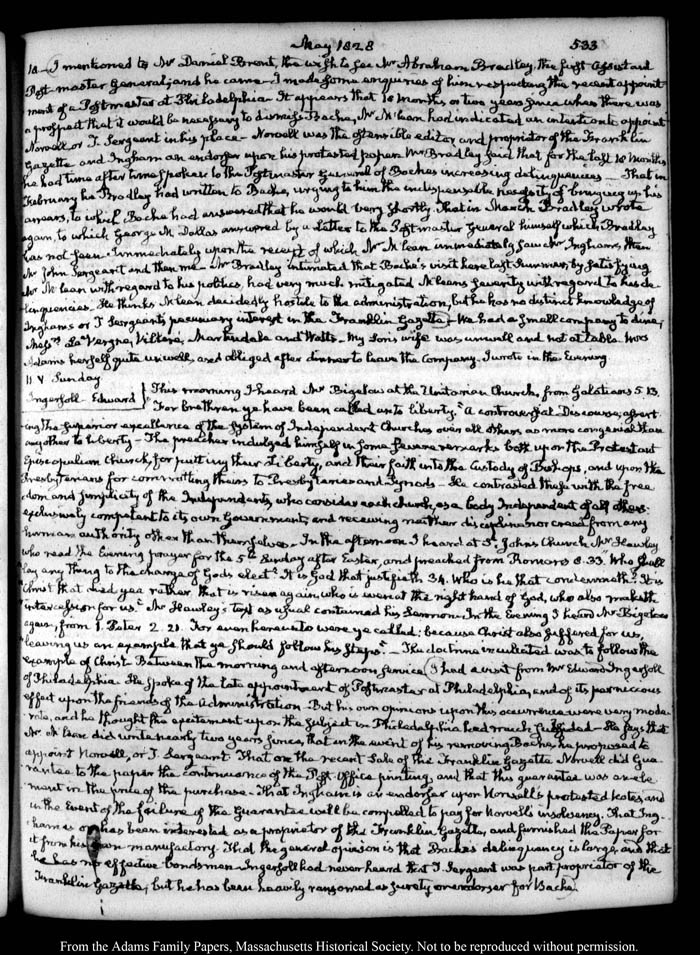 May 1828 533
10. I mentioned to Mr Daniel Brent, the wish to see Mr Abraham Bradley, the first Assistant
Post-master General; and he came. I made some enquiries of him respecting the recent appoint-
ment of a Postmaster at Philadelphia. It appears that 18 months or two years since when there was
a prospect that it would be necessary to dismiss Bache, Mr McLean had indicated an intention to appoint
Norvell or T. Sergeant in his place— Norvell was the ostensible editor and proprietor of the Franklin
Gazette and Ingham an endorser upon his protested paper. Mr Bradley said that for the last 18 months
he had time after time spoken to the Postmaster General of Bache's increasing delinquencies— That in
February he Bradley had written to Bache, urging to him the indispensable necessity of bringing up his
arrears, to which Bache had answered that he would very shortly. That in March Bradley wrote
again, to which George M. Dallas answered by a Letter to the Postmaster General himself which Bradley
has not seen. Immediately upon the receipt of which Mr McLean immediately saw Mr Ingham, then
Mr John Sergeant and then me— Mr Bradley intimated that Bache's visit here last Summer, by satisfying
Mr McLean with regard to his politics, had very much mitigated McLean's severity with regard to his de-
linquencies. He thinks McLean decidedly hostile to the administration, but he has no distinct knowledge of
Ingham's or T. Sergeant's pecuniary interest in the Franklin Gazette— We had a small company to dine;
Messrs La Vergne, Villeré, Markendale and Watts. My Son's wife was unwell and not at table. Mrs
Adams herself quite unwell, and obliged after dinner to leave the Company. I wrote in the Evening
11. V Sunday
Ingersoll Edward } This morning I heard Mr Bigelow at the Unitarian Church, from Galatians 5 13.
"For brethren ye have been called unto liberty." A controversial Discourse, assert-
ing the superior excellence of the System of Independent Churches over all others, as more congenial than
any other to Liberty— The preacher indulged himself in some severe remarks both upon the Protestant
Episcopalian Church, for putting their Liberty, and their faith into the Custody of Bishops, and upon the
Presbyterians for committing theirs to Presbyteries and Synods— He contrasted these with the free-
dom and simplicity of the Independents, who consider each church, as a body Independent of all others:
exclusively competent to its own Government, and receiving neither discipline nor creed from any
human authority other than themselves. In the afternoon I heard at St Johns Church Mr Hawley
who read the Evening prayer for the 5th Sunday after Easter, and preached from Romans 8. 33. "Who shall
lay any thing to the charge of Gods elect? It is God that justifieth 34. Who is he that condemneth? It is
Christ that died yea rather that is risen again, who is even at the right hand of God, who also maketh
intercession for us." Mr Hawley's text as usual contained his Sermon. In the Evening I heard Mr Bigelow
again, from 1. Peter 2. 21. For even hereunto were ye called: because Christ also suffered for us,
leaving us an example that ye should follow his steps."— The doctrine inculcated was to follow the
example of Christ. Between the morning and afternoon service I had a visit from Mr Edward Ingersoll
of Philadelphia. He spoke of the late appointment of Postmaster at Philadelphia, and of its pernicious
effect upon the friends of the Administration. But his own opinions upon this occurrence were very mode-
rate, and he thought the excitement upon the subject in Philadelphia had much subsided— He says that
Mr McLean did write nearly two years since, that in the event of his removing Bache, he proposed to
appoint Norvell, or T. Sergeant. That on the recent Sale of the Franklin Gazette Norvell did Gua-
rantee to the paper the continuance of the Post-Office printing, and that this guarantee was an ele-
ment in the price of the purchase. That Ingham is an endorser upon Norvell's protested Notes, and
in the Event of the failure of the Guarantee will be compelled to pay for Norvell's insolvency. That Ing-
ham is or has been interested as a proprietor of the Franklin Gazette, and furnished the Paper for
it from his own manufactory. That the general opinion is that Bache's delinquency is large, and that
he has no effective bondsmen. Ingersoll had never heard that T. Sergeant was part proprietor of the
Franklin Gazette, but he has been heavily ransomed as surety or endorser for Bache.
From the Adams Family Papers, Massachusetts Historical Society. Not to be reproduced without permission.